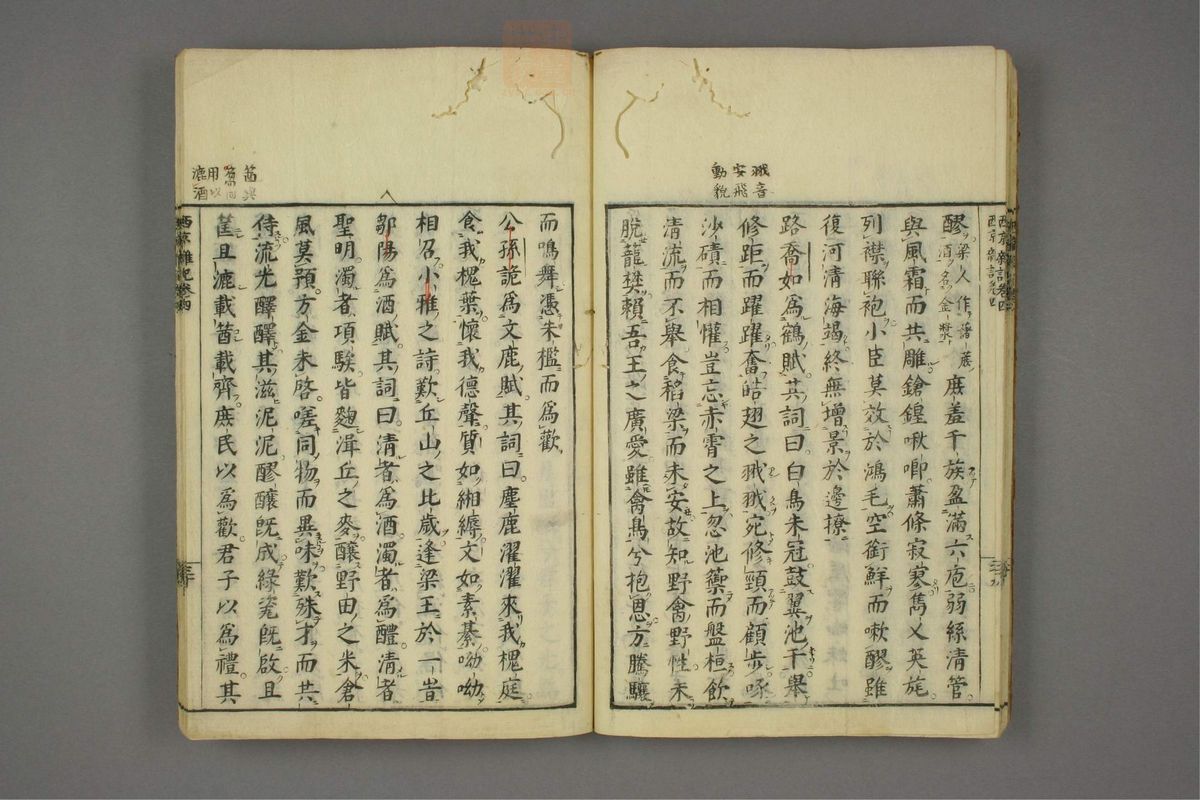 西京雜記卷四
醪梁人作藷蔗酒名金漿庶羞千族盈滿六庖弱絲清管
與風霜而共雕鎗鍠啾唧蕭條寂寥雋乂英旄
列襟聯袍小臣莫效於鴻毛空銜鮮而嗽醪雖
復河清海竭終無增景於邊撩
路喬如為鶴賦其詞曰白鳥朱冠鼓翼池干舉
修距而躍躍奮皓翅之𪀚𪀚宛修頸而顧步啄
沙磧而相懽豈忘赤霄之上忽池籞而盤桓飲
清流而不舉食稻粱而未安故知野禽野性未
脫籠樊賴吾王之廣愛雖禽鳥兮抱恩方騰驤
音
安飛
動貌
而鳴舞憑朱檻而為歡
公孫詭為文鹿賦其詞曰麀鹿濯濯來我槐庭
食我槐葉懷我德聲質如緗縟文如素綦呦呦
相召小雅之詩歎丘山之比歲逢梁王於一旹
鄒陽為酒賦其詞曰清者為酒濁者為醴清者
聖明濁者頑騃皆麴湒丘之麥釀野田之米倉
風莫預方金未啓嗟同物而異味歎殊才而共
侍流光醳醳其滋泥泥醪釀旣成綠瓷旣啟且
筐且漉載茜載齊庶民以為歡君子以為禮其
用以
漉酒
西京雜記卷四